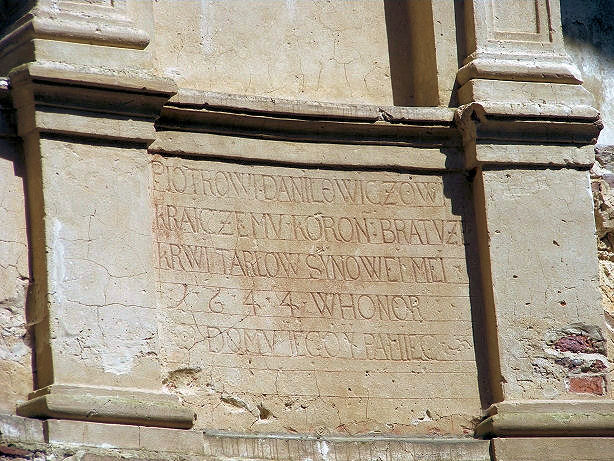 PIOTROWI·DANILOWICZOWI
KRAICZEMV·KORON·BRATV Z
KRWI TARLOW SYNOWEI MEI
1644 WHONOR
DOMV IEGO Y PAMIEC